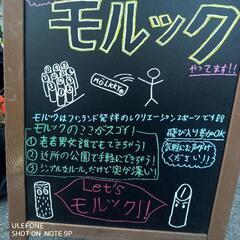 モルック
やってます!!
MOLKKY
モルックはフィンランド発祥のレクリエーションスポーツです
モルックのここがスゴイ!
①老若男女誰でもできちゃう!
②近所の公園で手軽にできちゃう!
③シンプルなルール、だけど奥が深い!
飛び入り参加OK
気軽にお声がけ
ください!!
Let's
モルック!!
ULEFONE
SHOT ON NOTE 9P